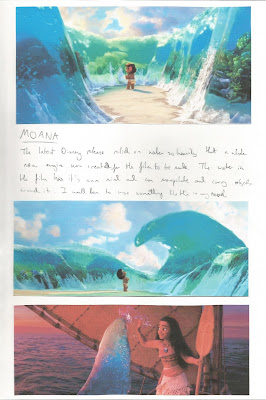 MOANA
The latest Disney release relied on water so heavily that a whole
new engine was created for the film to be made. The water in
the film has it's own mind and can manipulate and carry objects
around it. I would love to use something like this in my